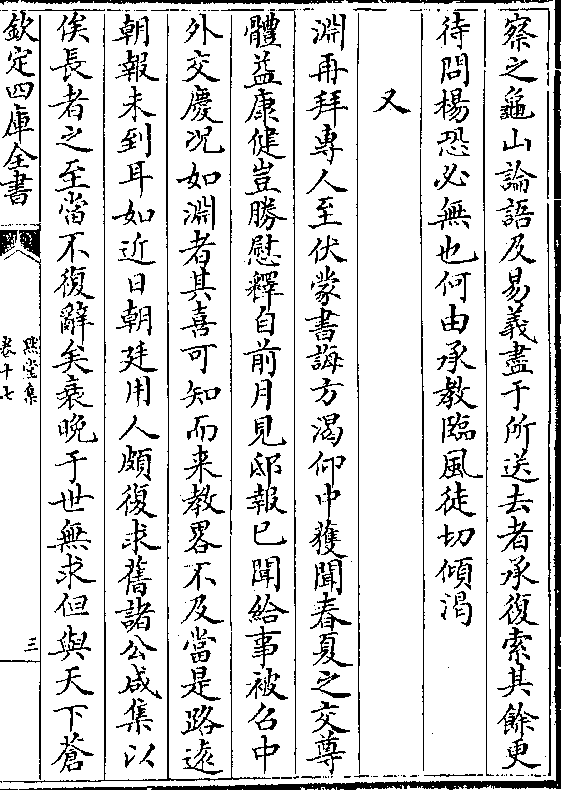 察之龜山論語及易義盡于所送去者承復索其餘更
待問楊恐必無也何由承教臨風徒切傾渴
又
淵再拜專人至伏蒙書誨方渴仰中獲聞春夏之交尊
體益康健豈勝慰釋自前月見邸報已聞給事被召中
外交慶况如淵者其喜可知而来教畧不及當是路逺
朝報未到耳如近日朝廷用人頗復求舊諸公咸集以
俟長者之至當不復辭矣衰晚于世無求但與天下蒼
欽定四庫全書
黙堂集
卷十七
三